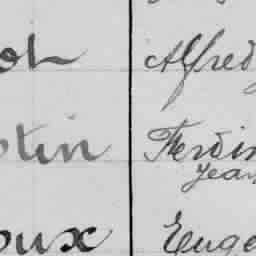 ot Alfred
tin Ferdin
Jean
oux Euge